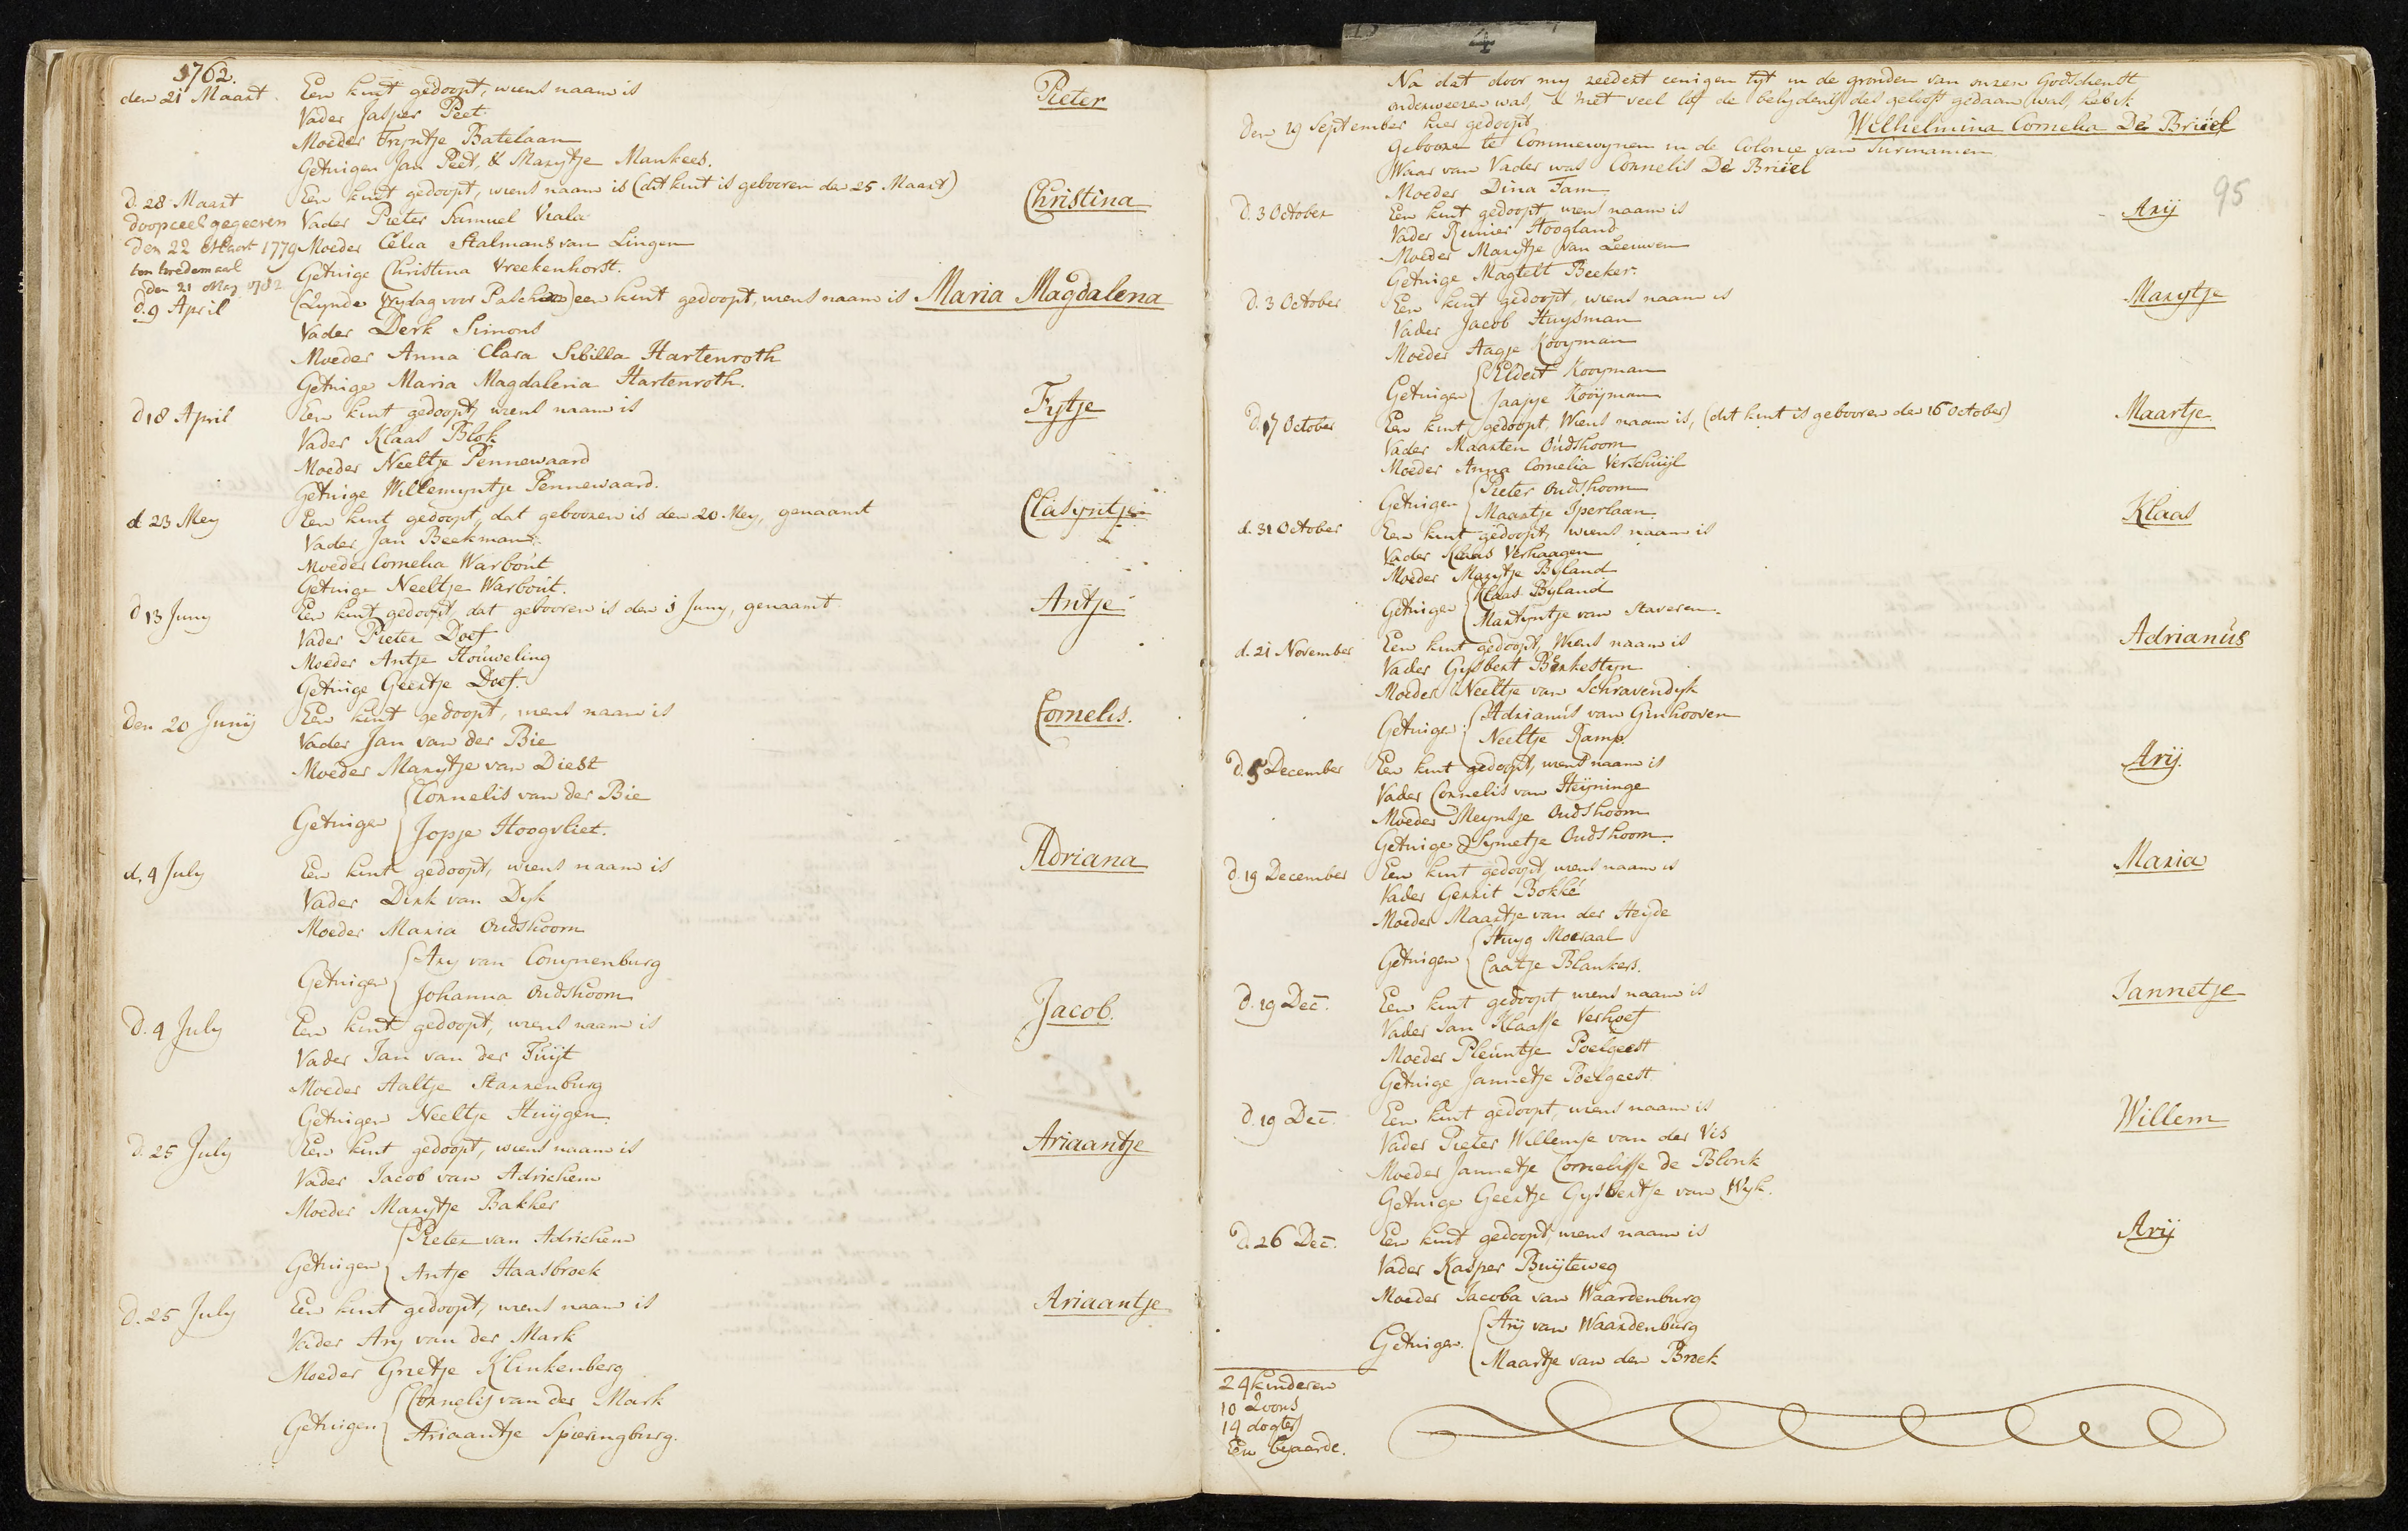 1762.
den 21 Maart. Een kint gedoopt, wiens naam is Pieter
Vader Jasper Peet.
Moeder Tryntje Batelaan
Getuigen Jan Peet, & Marytje Mankees.
d. 28 Maart Een kint gedoopt, wiens naam is (dit kint is gebooren den 25 Maart) Christina
doopceel gegeeven Vader Pieter Samuel Viala
den 22 Maart 1779 Moeder Celia Stalmans van Lingen
ten tweedemaal
den 21 May 1782 Getuige Christina Vreekenhorst.
d. 9 April (Zynde Vrydag voor Paschen) een kint gedoopt, wiens naam is Maria Magdalena
Vader Derk Simons
Moeder Anna Clara Sibilla Hartenroth
Getuige Maria Magdalena Hartenroth.
d 18 April Een kint gedoopt, wiens naam is Fytje
Vader Klaas Blok
Moeder Neeltje Pennewaard
Getuige Willemyntje Pennewaard.
d 23 Mey Een kint gedoopt, dat gebooren is den 20 Mey, genaamt Clasyntje
Vader Jan Beekman
Moeder Cornelia Warbout
Getuige Neeltje Warbout.
d 13 Juny Een kint gedoopt, dat gebooren is den 5 Juny, genaamt Antje
Vader Pieter Doef
Moeder Antje Houweling
Getuige Geertje Doef.
Den 20 Junij Een kint gedoopt, wiens naam is Cornelis.
Vader Jan van der Bie
Moeder Marytje van Diest
Getuigen Cornelis van der Bie
Jopje Hoogvliet.
d. 4 July Een kint gedoopt, wiens naam is Adriana
Vader Dirk van Dyk
Moeder Maria Oudshoorn
Getuigen Ary van Conynenburg
Johanna Oudshoorn
D. 4 July Een kint gedoopt, wiens naam is Jacob.
Vader Jan van der Fuijt
Moeder Aaltje Starrenburg
Getuigen Neeltje Huijgen.
D. 25 July Een kint gedoopt, wiens naam is Ariaantje
Vader Jacob van Adrichem
Moeder Marytje Bakker
Getuigen Pieter van Adrichem
Antje Haasbroek
D. 25 July Een kint gedoopt, wiens naam is Ariaantje
Vader Ary van der Mark
Moeder Grietje Klinkenberg
Getuigen Cornelis van der Mark
Ariaantje Spieringburg.
4
95
Na dat door my zeedert eenigen tyt in de gronden van onzen Godsdienst
onderweezen was, & met veel lof de belydenis des geloofs gedaan was, heb ik
Den 19 September hier gedoopt Wilhelmina Cornelia De Briëel
Gebooren te Commewynen in de Colonie van Surinamen
Waar van Vader was Cornelis De Briëel
Moeder Dina Fam
D. 3 October Een kint gedoopt, wiens naam is Arij
Vader Reinier Hoogland
Moeder Marytje van Leeuwen
Getuige Magtelt Beeker.
D. 3 October Een kint gedoopt, wiens naam is Marytje
Vader Jacob Huysman
Moeder Aagje Kooyman
Getuigen Eldert Kooyman
Jaapje Kooijman
D. 17 October Een kint gedoopt. Wiens naam is, (dit kint is gebooren den 16 October) Maartje
Vader Maarten Oudshoorn
Moeder Anna Cornelia Verschuijl
Getuigen Pieter Oudshoorn
Maartje Iperlaan
d. 31 October Een kint gedoopt, wiens naam is Klaas
Vader Klaas Verhaagen
Moeder Marytje Byland
Getuigen Klaas Byland
Martyntje van Staveren.
d. 21 November Een kint gedoopt, Wiens naam is Adrianus
Vader Gysbert Berkestyn
Moeder Neeltje van Schravendyk
Getuigen Adrianus van Ginhooven
Neeltje Ramp.
D. 5 December Een kint gedoopt, wiens naam is Arij.
Vader Cornelis van Heijninge
Moeder Meyntje Oudshoorn
Getuige Symetje Oudshoorn.
D. 19 December Een kint gedoopt, wiens naam is Maria
Vader Gerrit Bokké
Moeder Maartje van der Heyde
Getuigen Huyg Moeraal
Caatje Blankers.
D. 19 Dec. Een kint gedoopt wiens naam is Jannetje
Vader Jan Klaasse Verhoef
Moeder Pleuntje Poelgeest
Getuige Jannetje Poelgeest
D. 19 Dec. Een kint gedoopt, wiens naam is Willem
Vader Pieter Willemse van der Vis
Moeder Jannetje Cornelisse de Blonk
Getuige Geertje Gysbertse van Wyk.
D. 26 Dec. Een kint gedoopt, wiens naam is Arij
Vader Kasper Buijteweg
Moeder Jacoba van Waardenburg
Getuigen. Arij van Waardenburg
Maartje van den Broek
24 kinderen
10 Zoons
14 dogters
Een bejaarde.